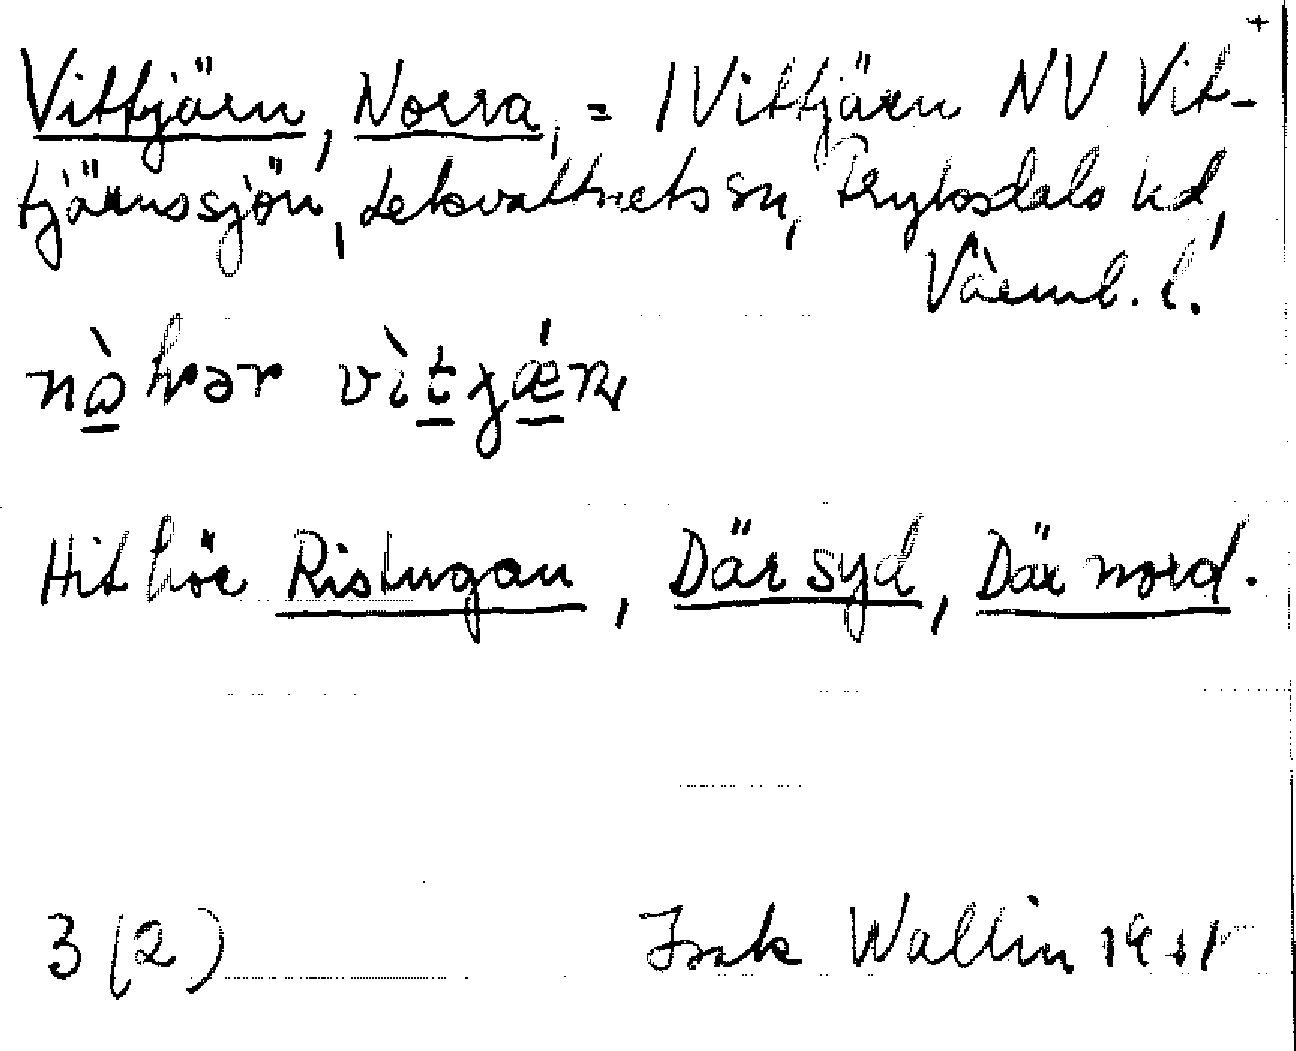 Vittjärn, Norra, = 1 Vittjärn NV Vit-
tjärnssjön, Lekvattnets sn, Fryksdals hd,
Värml. l.
nò̱hrər vìt̲jǽ̲rn
Hit hör Ristugan, Där syd, Där nord.
3 (2) Isak Wallin 19